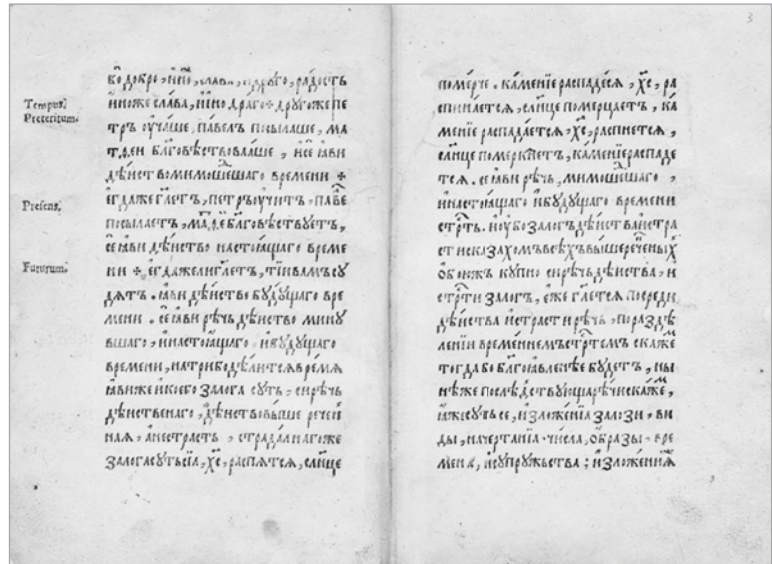 во добро, ино, слава, и драго, радость
ино же слава, ино драго + другоже пе
Tempus.
Preteritum.
тръ оучаше, павелъ посылаше, ма
тѳеи бл҃говѣствоваше, исе ꙗви
дѣиство мимошешаго времени +
Presens,
егдаже гл҃етъ, петръ оучитъ, паве
посылаетъ, маѳе бл҃говѣствуетъ,
се ꙗви дѣиство настоꙗщаго време
Futurum.
ни + егдаже ли гл҃етъ, тїи вамъ су
дятъ. ꙗви дѣиство будущаго вре
мени. се ꙗви рѣчь дѣиство мину
вшаго, и настоꙗщаго и будущаго
времени, натрибо дѣлитсѧ времѧ
ꙗвиже коего залога суть, сирѣчь
дѣиственаго, дѣиство выше речен
ная, а не страсть, страдалнагоже
залога суть сїа, х҃с, распятся, слн҃це
3
померче. каменїе распадеся, х҃с, ра
спинается, слн҃це померцаетъ, ка
менїе распадается, х҃с, распнется,
слн҃це померкнетъ, каменїе распаде
тся. се ꙗви рѣчь, мимошешаго,
и настоꙗщаго и будущаго времени
стр҃ть. но убо залогъ дѣиства и стра
сти сказахомъ всѣхъ вышереченыхъ
обоижъ купно сирѣчь дѣиства, и
стр҃ти залогъ, еже гл҃ется посреди
дѣиства и страсти рѣчь, по раздѣ
ленїи временемъ стр҃темъ скаже
тогда бо бл҃гоꙗвленѣе будетъ, ны
нѣже послѣдствующаа рѣчи скаже,
ꙗже суть се, изложенїа залози, ви
ды, начертанїа числа, образы, вре
мена, и супружьства; изложенїиꙗ